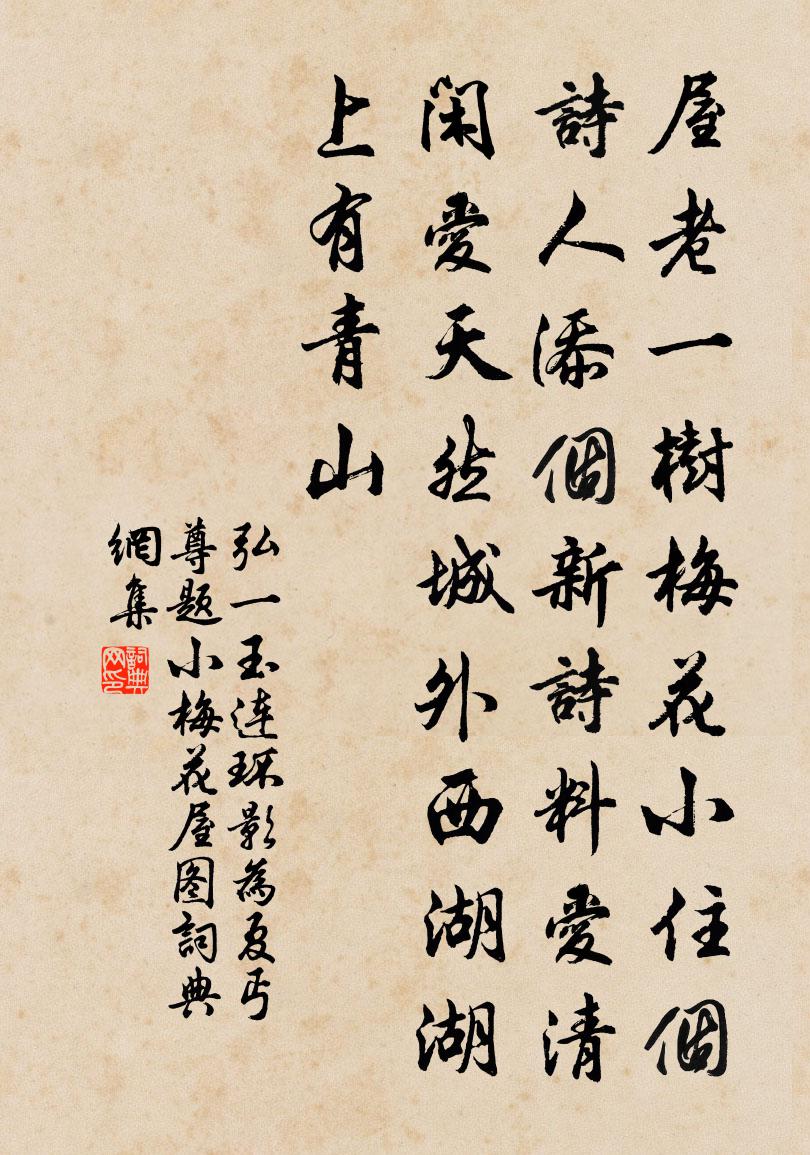 屋老一樹梅花小住個
詩人添個新詩料愛清
閑愛天然城外西湖湖
上有青山
弘一玉連環影為夏丏
尊題小梅花屋图詞典
網集
詞典网印